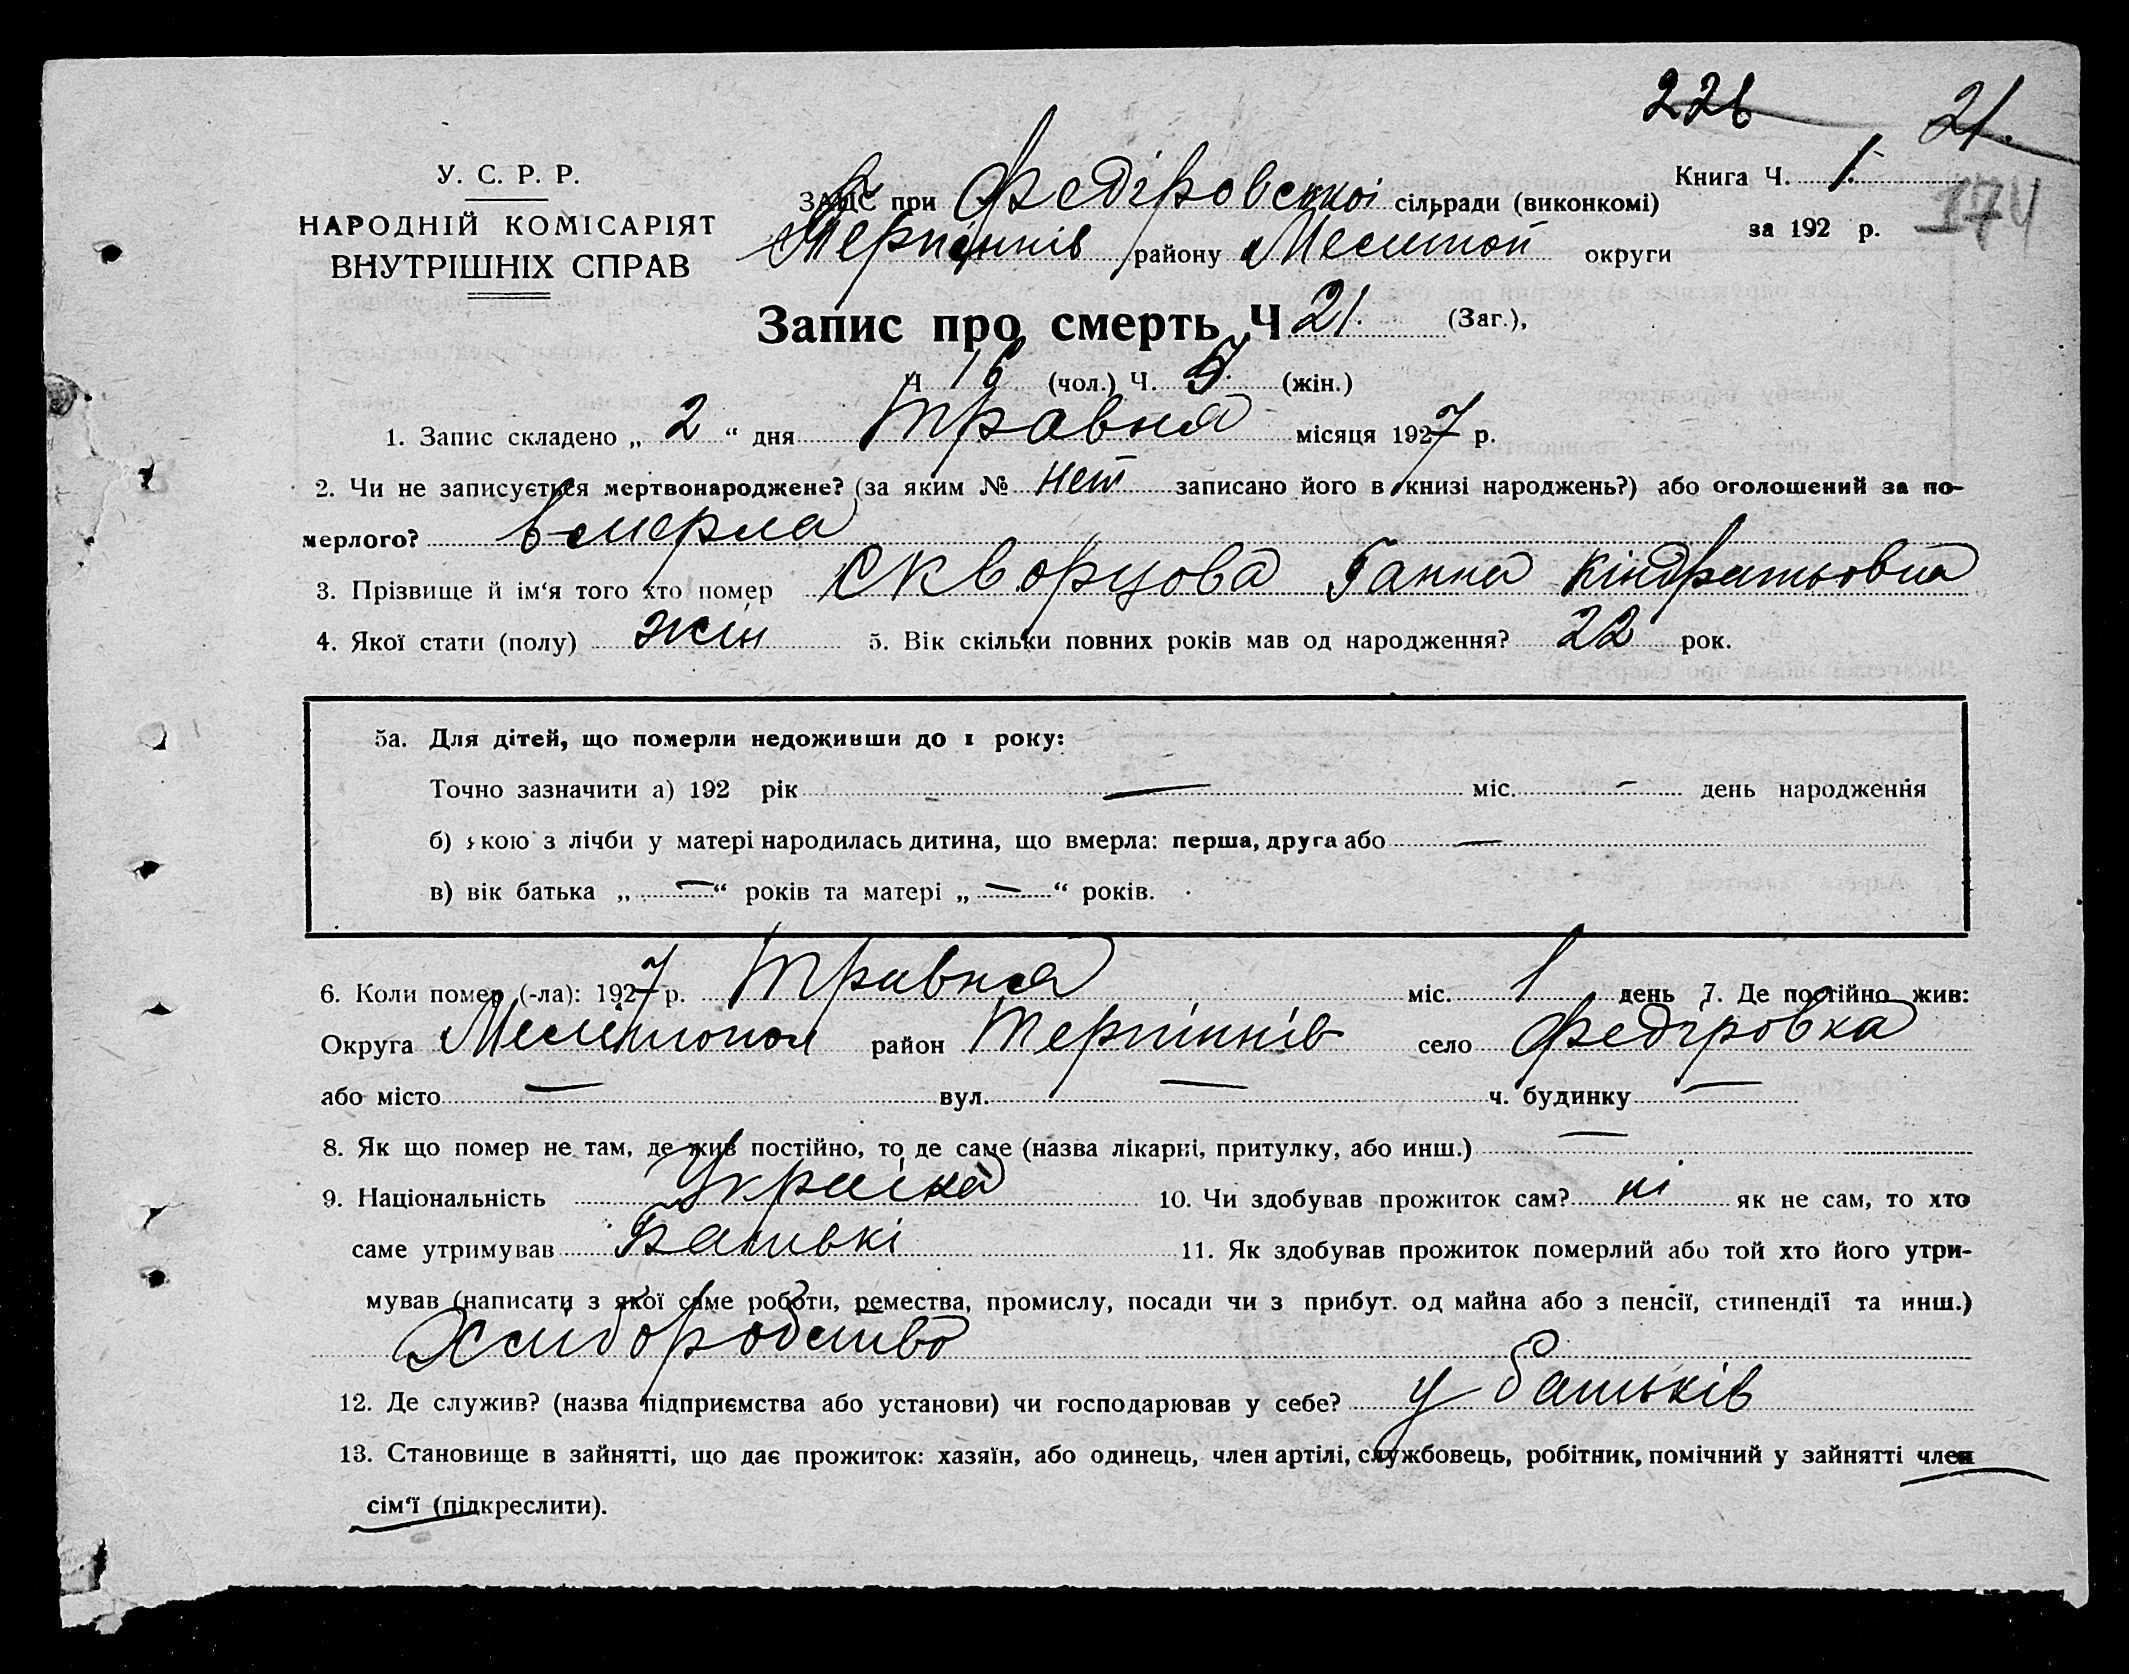 226 21.
У. С. Р. Р.
НАРОДНІЙ КОМІСАРІЯТ
ВНУТРІШНІХ СПРАВ
ЗАЦС при Федіровської сільради (виконкомі)
Терпіннів району Мелітоп округи
Книга Ч. 1.
за 192 р. 174
Запис про смерть Ч 21. (Заг.),
Ч 16 (чол.) Ч. 5. (жін.)
1. Запис складено „ 2 “ дня травня місяця 1927 р.
2. Чи не записується мертвонароджене? (за яким № нет записано його в книзі народжень?) або оголошений за по-
мерлого? вмерла
3. Прізвище й ім‘я того хто помер Скворцова Ганна Кіндратьовна
4. Якої стати (полу) жін 5. Вік скільки повних років мав од народження? 22 рок.
5а. Для дітей, що померли недоживши до 1 року:
Точно зазначити а) 192 рік — міс. - день народження
б) якою з лічби у матері народилась дитина, що вмерла: перша, друга або —
в) вік батька „ — “ років та матері „ — “ років.
6. Коли помер (-ла): 1927 р. травня міс. 1 день 7. Де постійно жив:
Округа Мелітопол район Терпіннів село Федіровка
або місто — вул. — ч. будинку —
8. Як що помер не там, де жив постійно, то де саме (назва лікарні, притулку, або инш.) —
9. Національність Украінка 10. Чи здобував прожиток сам? ні як не сам, то хто
саме утримував Батькі 11. Як здобував прожиток померлий або той хто його утри-
мував (написати з якої саме роботи, ремества, промислу, посади чи з прибут. од майна або з пенсії, стипендії та инш.)
Хліборобство
12. Де служив? (назва підприємства або установи) чи господарював у себе? у батьків
13. Становище в зайнятті, що дає прожиток: хазяїн, або одинець, член артілі, службовець, робітник, помічний у зайнятті член
сім‘ї (підкреслити).